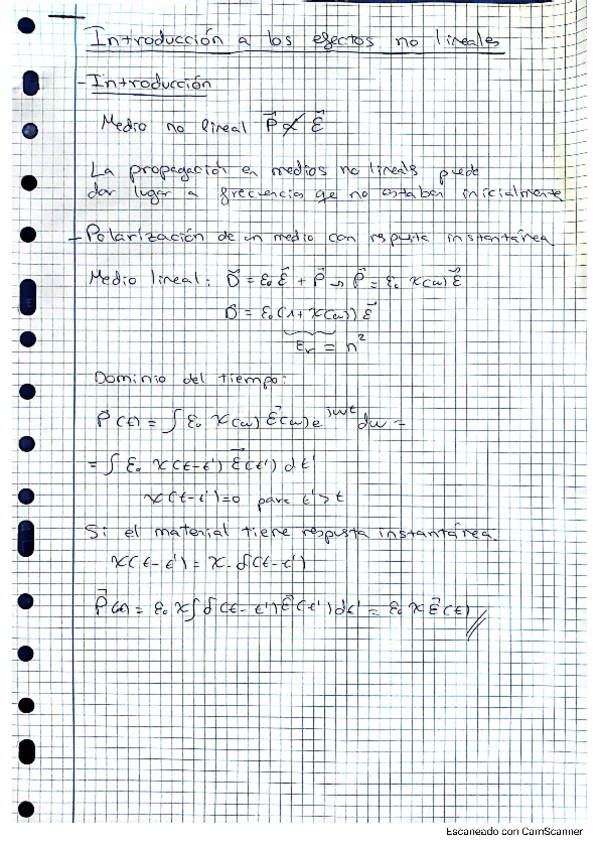 Introducción a los efectos no lineales
- Introducción
Medio no lineal P⃗ ∝̸ ℰ⃗
La propagación en medios no lineals puede
dar lugar a frecuencias qe no estaban inicialmente
- Polarización de un medio con respusta instantánea
Medio lineal: D⃗ = ε₀ ℰ⃗ + P⃗ → P⃗ = ε₀ χ(ω) ℰ⃗
D⃗ = ε₀ (1 + χ(ω)) ℰ⃗
εr = n²
Dominio del tiempo:
P⃗(t) = ∫ ε₀ χ(ω) ℰ⃗(ω) e^jωt dω =
= ∫ ε₀ χ(t-t') ℰ⃗(t') dt'
χ(t-t') = 0 para t' > t
Si el material tiene respusta instantánea.
χ(t-t') = χ · δ(t-t')
P⃗(t) = ε₀ χ ∫ δ(t-t') ℰ⃗(t') dt' = ε₀ χ ℰ⃗(t) //
Escaneado con CamScanner